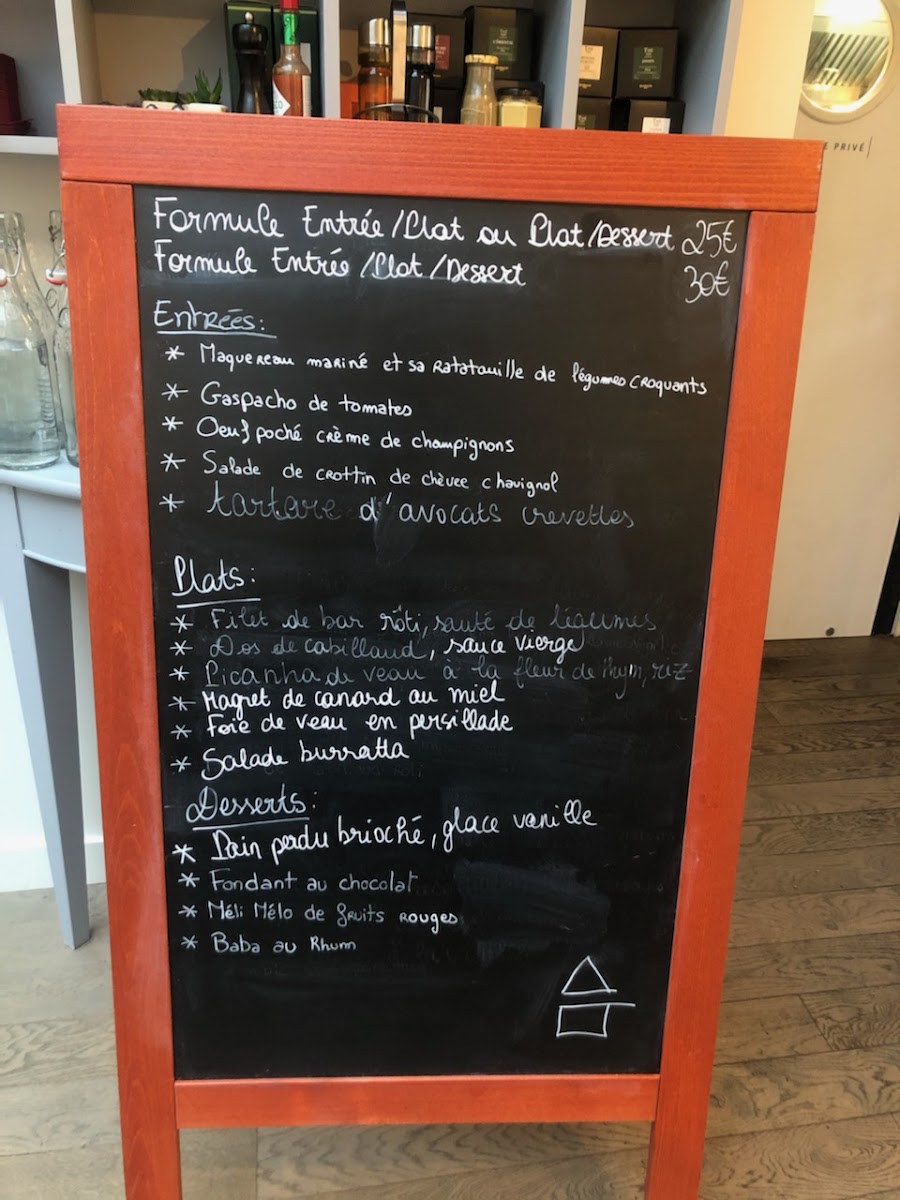 Formule Entrée/Plat ou Plat/Dessert 25€
Formule Entrée/Plat/Dessert 30€
Entrées:
* Maquereau mariné et sa Ratatouille de légumes croquants
* Gaspacho de tomates
* Oeuf poché crème de champignons
* Salade de crottin de chèvre chavignol
* tartare d'avocats crevettes
Plats:
* Filet de bar rôti, sauté de légumes
* Dos de cabillaud, sauce vierge
* Picanha de veau à la fleur de thym, riz
* Magret de canard au miel
* Foie de veau en persillade
* Salade burratta
Desserts:
* Pain perdu brioché, glace vanille
* Fondant au chocolat
* Méli Mélo de fruits rouges
* Baba au Rhum
E PRIVÉ